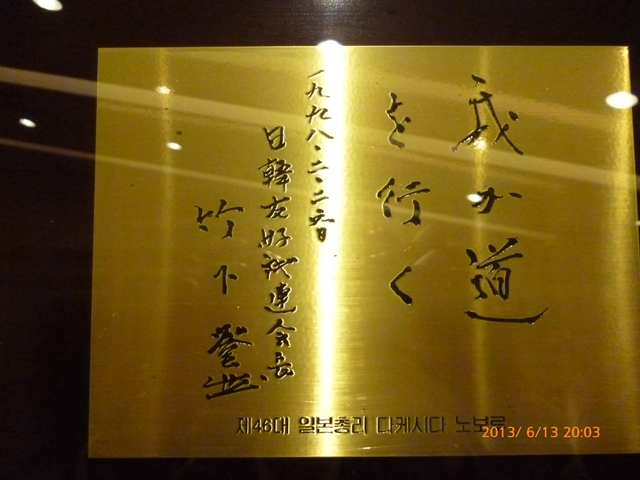 我か道
を行く
一九九八・二・二日
日韓友好議連会長
竹下登
제46대 일본총리 다케시다 노보루
2013/ 6/13 20:03